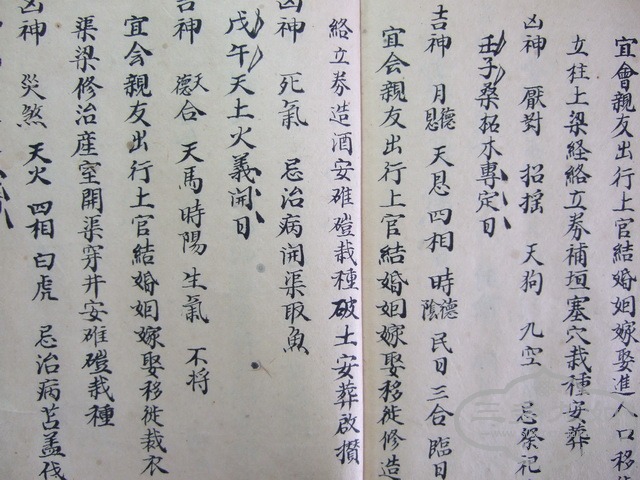 宜會親友出行上官結婚姻嫁娶進人口移
立柱上梁経絡立券補垣塞穴栽種安葬
凶神 厭對 招揺 天狗 九空 忌祭祀
壬子桑柘木專定日
吉神 月德恩 天恩四相 時德隂 民日三合臨日
宜会親友出行上官結婚姻嫁娶移徙修造
絡立券造酒安碓磑栽種破土安葬啟攅
凶神 死氣 忌治病開渠取魚
戊午天上火義開日
吉神 天德合 天馬時陽生氣 不将
宜会親友出行上官結婚姻嫁娶移徙裁衣
渠梁修治産室開渠穿井安碓磑栽種
凶神 災煞 天火 四相 白虎 忌治病苫盖伐